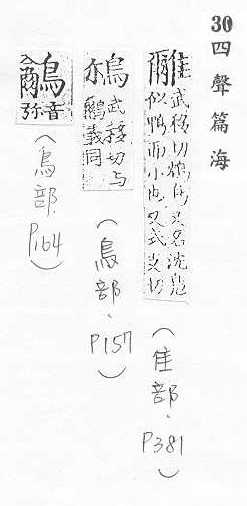 30 四聲篇海
武移切鸍鳥又名沈鳧
似鴨而小也又式支切
(隹部、P381)
武移切与
鸍義同
(鳥部、P157)
音
弥
(鳥部 P164)